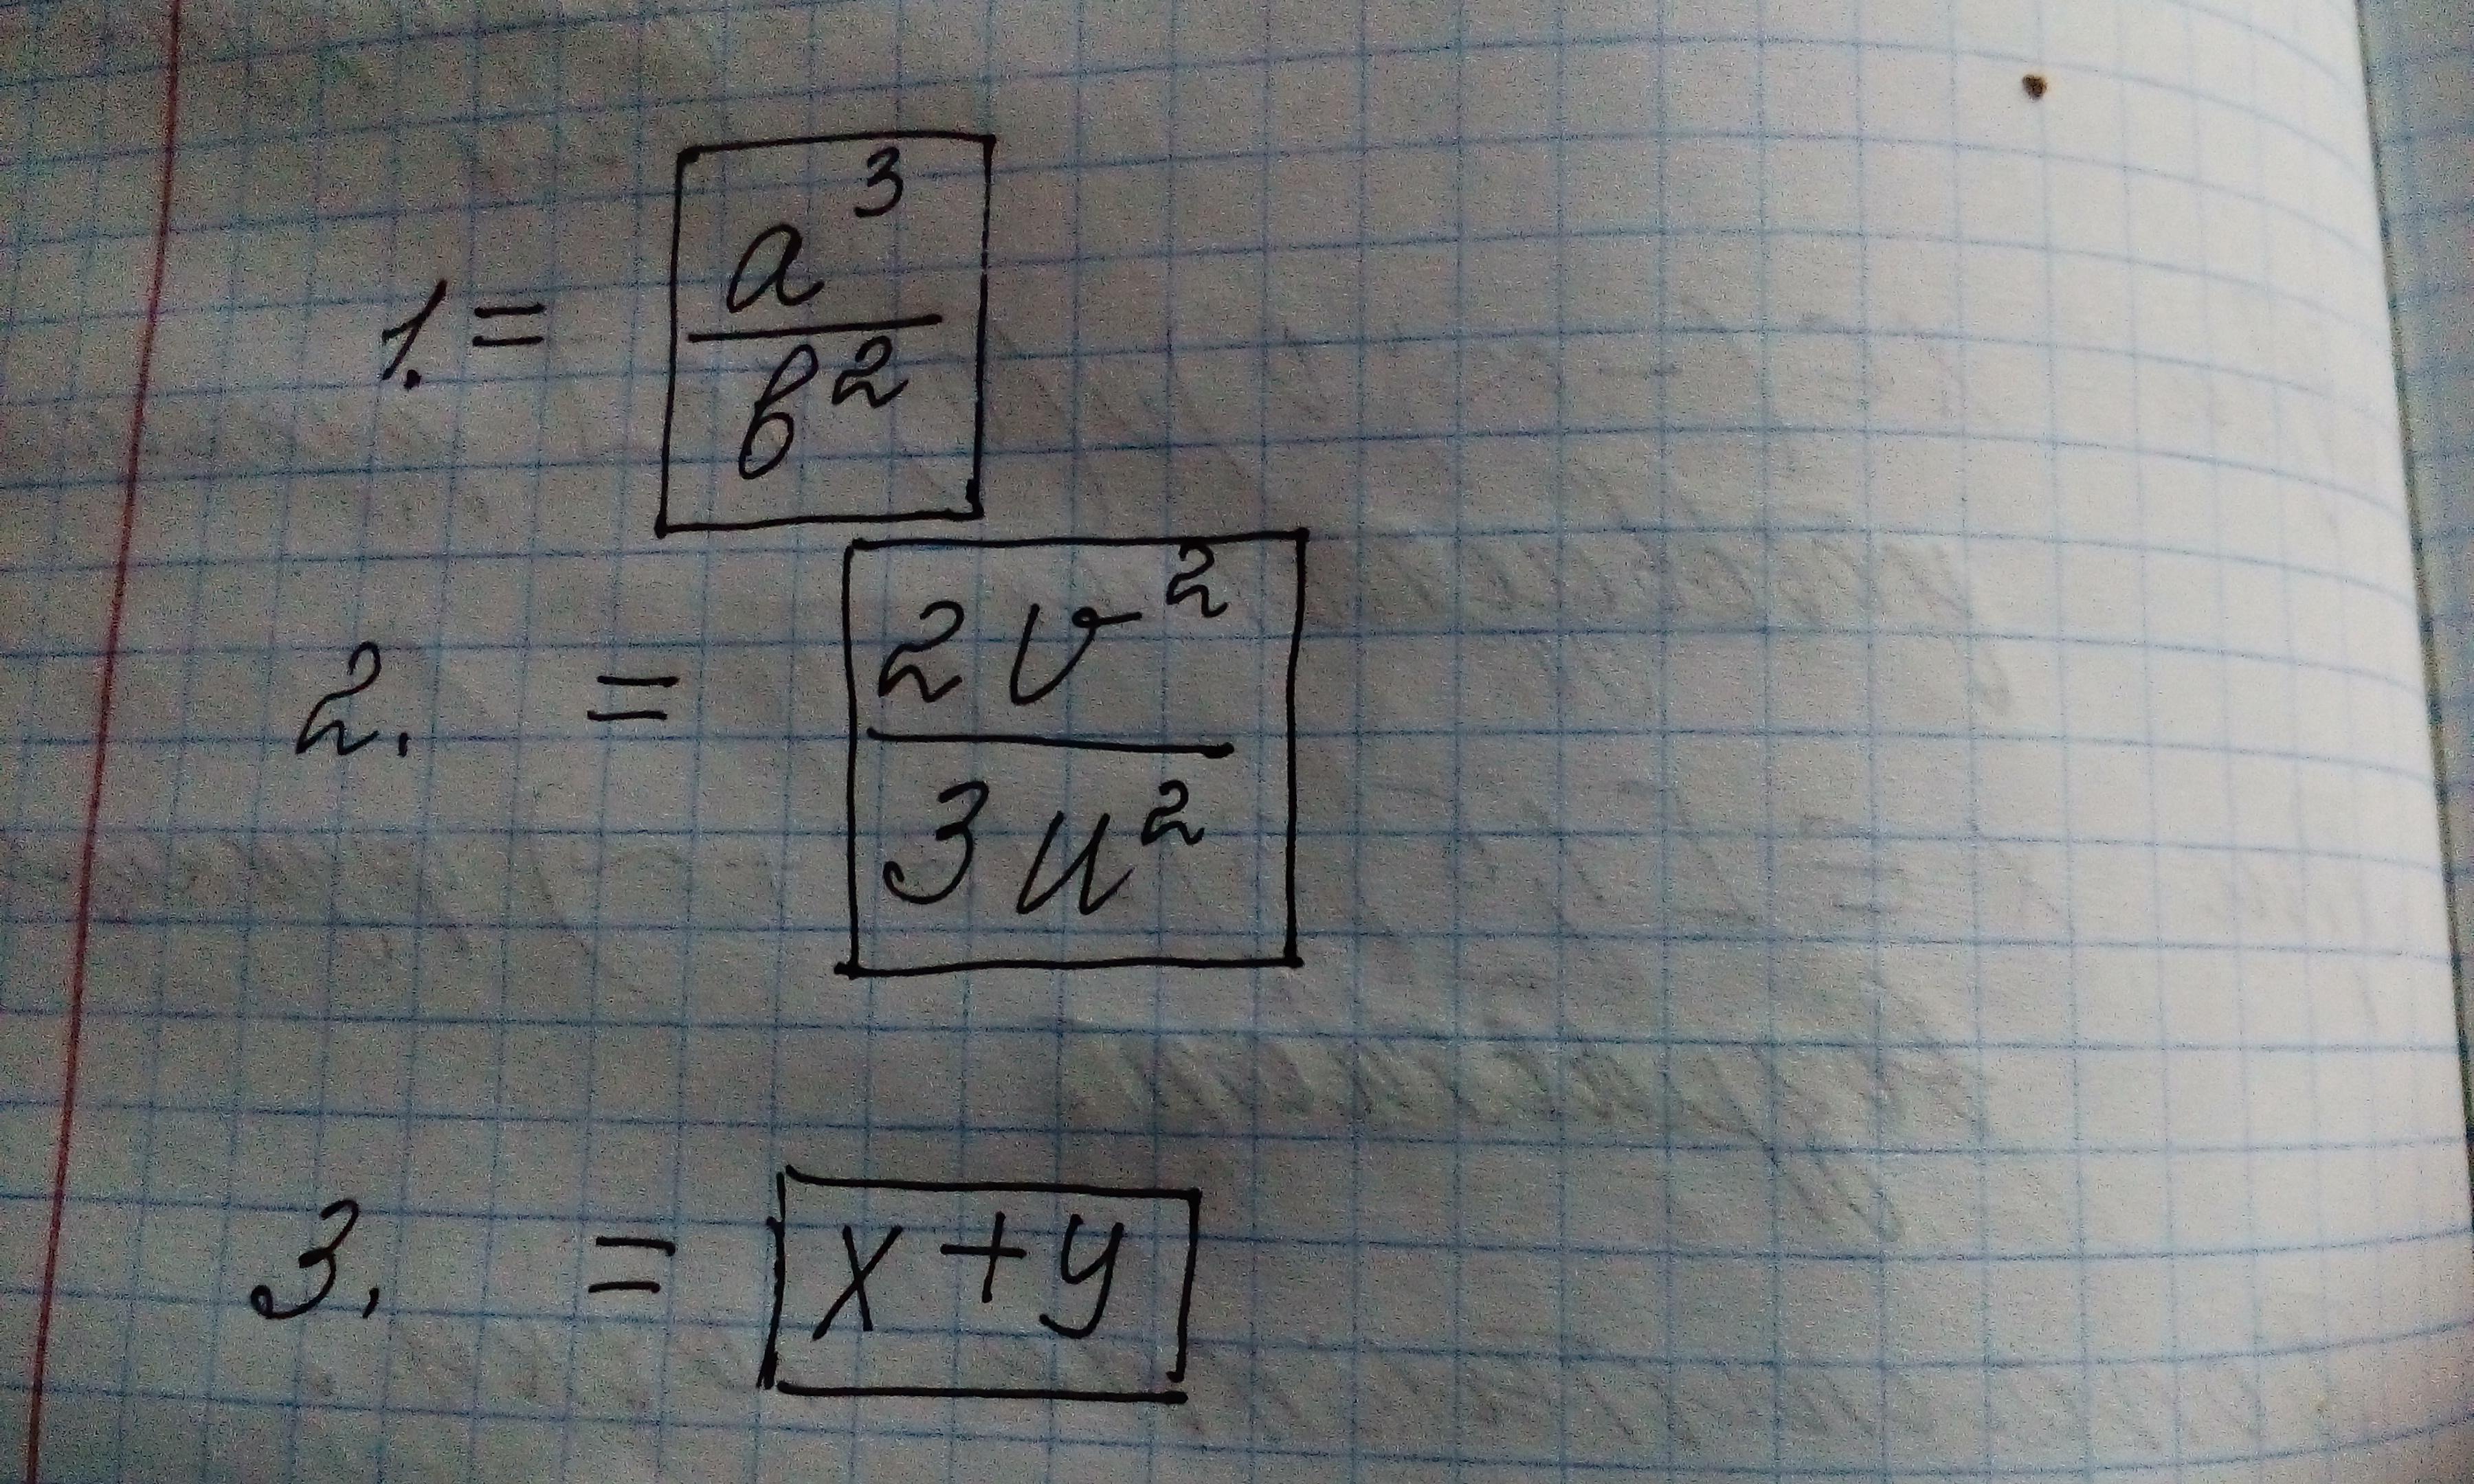 1. = a³/b²
2. = 2v²/3u²
3. = x+y